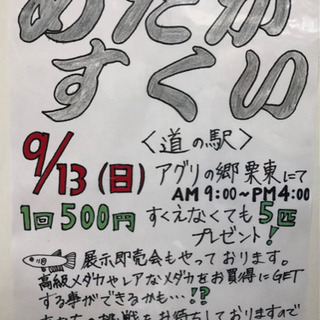 めだか
すくい
9/13(日)
〈道の駅〉
アグリの郷栗東にて
AM 9:00~PM 4:00
1回500円
すくえなくても5匹
プレゼント!
展示即売会もやっております。
高級メダカやレアなメダカをお買得にGET
する事ができるかも…!?
お待ちしておりますので